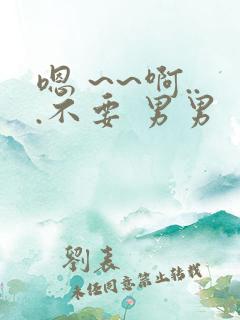 嗯 ~~啊..
.不要 男男
劉表
未经同意禁止转载